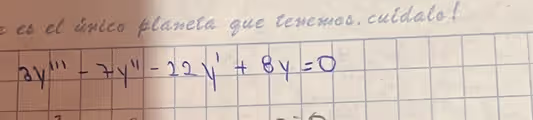 es el único planeta que tenemos. cuídalo!
3y''' - 7y'' - 22y' + 8y = 0